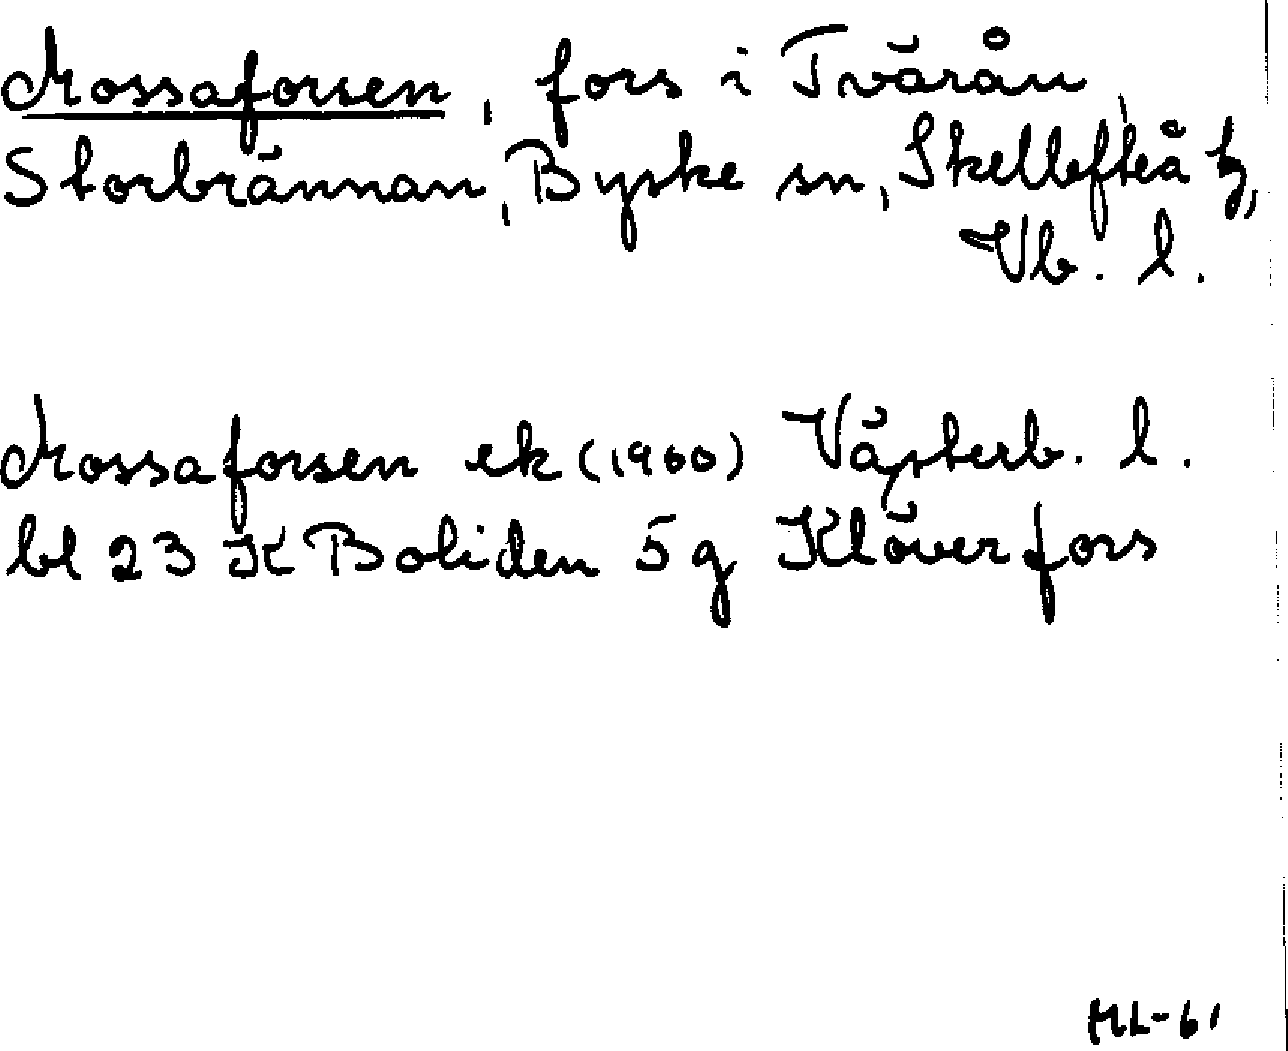 Mossaforsen, fors i Tvärån,
Storbrännan, Byske sn, Skellefteå tg,
Vb. l.
Mossaforsen ek (1960) Västerb. l.
bl 23 K Boliden 5 g Klöverfors
ML-61